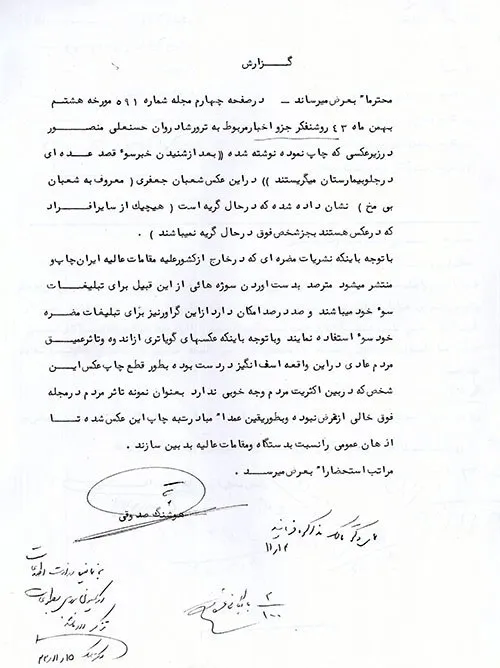 گـــزارش
محترما" بعرض میرساند ـ درصفحه چهارم مجله شماره ۵۹۱ مورخه هشتم
بهمن ماه ۴۳ روشنفکر جزو اخبارمربوط به ترورشادروان حسنعلی منصور
درزیرعکسی که چاپ نموده نوشته شده ((بعد ازشنیدن خبرسو° قصد عده ای
درجلوبیمارستان میگریستند )) دراین عکس شعبان جعفری ( معروف به شعبان
بی مخ ) نشان داده شده که درحال گریه است ( هیچیك از سایرافـــراد
که درعکس هستند بجزشخص فوق درحال گریه نمیباشند ) .
باتوجه باینکه نشریات مضره ای که درخارج ازکشورعلیه مقامات عالیه ایران چاپ و
منتشر میشود مترصد بدست اوردن سوژه هائی از این قبیل برای تبلیغـــات
سو° خود میباشند و صددرصد امکان دارد ازاین گراورنیز برای تبلیغات مضـــره
خود سو° استفاده نمایند وباتوجه باینکه عکسهای گویاتری ازاندوه وتاثرعمیـــق
مردم عادی دراین واقعه اسف انگیز دردست بوده بطور قطع چاپ عکس ایـــن
شخص که دربین اکثریت مردم وجه خوبی ندارد بعنوان نمونه تاثر مردم درمجله
فوق خالی ازغرض نبوده وبطوریقین عمدا" مبادرت به چاپ این عکس شده تـــا
اذهان عمومی رانسبت بدستگاه ومقامات عالیه بدبین سازند .
مراتب استحضارا" بعرض میرســـد .
هوشنگ صدوقی
مذاکره فرمائید
۱۱/۱۲
۲/۱۰۰